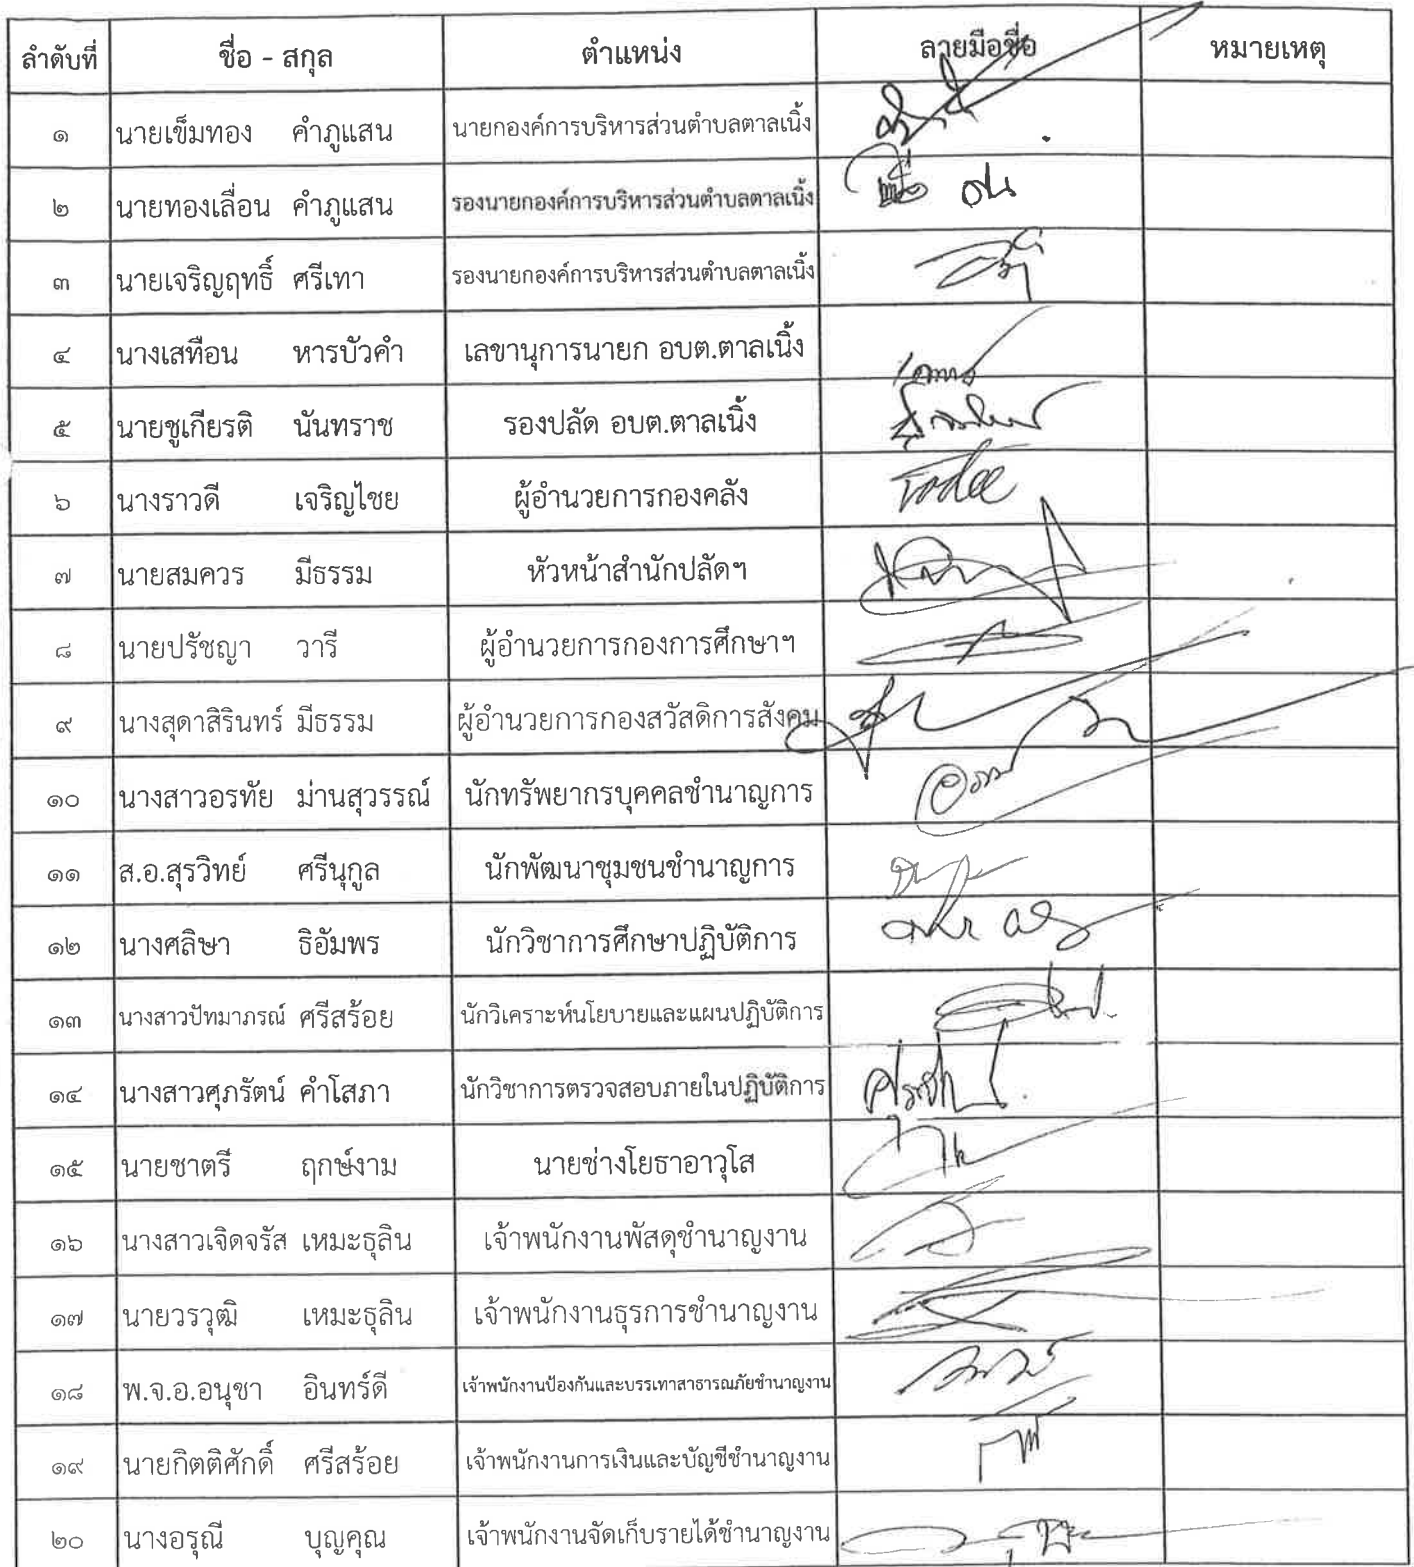 ลำดับที่ ชื่อ - สกุล ตำแหน่ง ลายมือชื่อ หมายเหตุ
๑ นายเข็มทอง คำภูแสน นายกองค์การบริหารส่วนตำบลตาลเนิ้ง
๒ นายทองเลื่อน คำภูแสน รองนายกองค์การบริหารส่วนตำบลตาลเนิ้ง
๓ นายเจริญฤทธิ์ ศรีเทา รองนายกองค์การบริหารส่วนตำบลตาลเนิ้ง
๔ นางเสทือน หารบัวคำ เลขานุการนายก อบต.ตาลเนิ้ง
๕ นายชูเกียรติ นันทราช รองปลัด อบต.ตาลเนิ้ง
๖ นางราวดี เจริญไชย ผู้อำนวยการกองคลัง
๗ นายสมควร มีธรรม หัวหน้าสำนักปลัดฯ
๘ นายปรัชญา วารี ผู้อำนวยการกองการศึกษาฯ
๙ นางสุดาสิรินทร์ มีธรรม ผู้อำนวยการกองสวัสดิการสังคม
๑๐ นางสาวอรทัย ม่านสุวรรณ์ นักทรัพยากรบุคคลชำนาญการ
๑๑ ส.อ.สุรวิทย์ ศรีนุกูล นักพัฒนาชุมชนชำนาญการ
๑๒ นางศลิษา ธิอัมพร นักวิชาการศึกษาปฏิบัติการ
๑๓ นางสาวปัทมาภรณ์ ศรีสร้อย นักวิเคราะห์นโยบายและแผนปฏิบัติการ
๑๔ นางสาวศุภรัตน์ คำโสภา นักวิชาการตรวจสอบภายในปฏิบัติการ
๑๕ นายชาตรี ฤกษ์งาม นายช่างโยธาอาวุโส
๑๖ นางสาวเจิดจรัส เหมะธุลิน เจ้าพนักงานพัสดุชำนาญงาน
๑๗ นายวรวุฒิ เหมะธุลิน เจ้าพนักงานธุรการชำนาญงาน
๑๘ พ.จ.อ.อนุชา อินทร์ดี เจ้าพนักงานป้องกันและบรรเทาสาธารณภัยชำนาญงาน
๑๙ นายกิตติศักดิ์ ศรีสร้อย เจ้าพนักงานการเงินและบัญชีชำนาญงาน
๒๐ นางอรุณี บุญคุณ เจ้าพนักงานจัดเก็บรายได้ชำนาญงาน